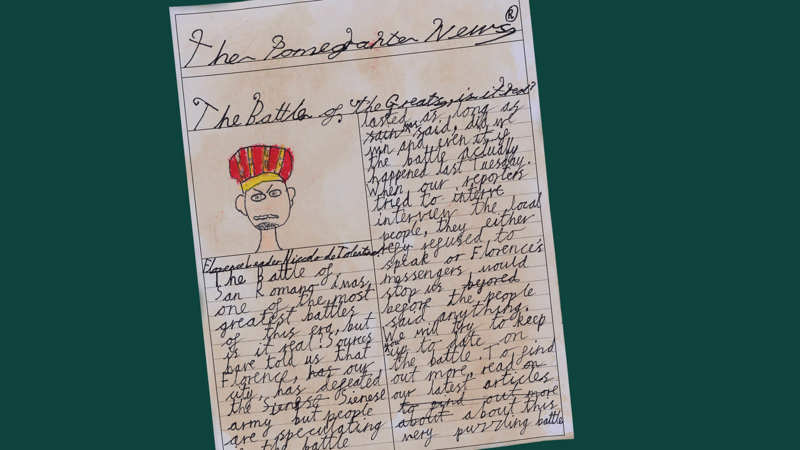 The Pomegranter News
®
The Battle of the Greats, is it real?
Florence Leader Niccolo da Tolentino
The Battle of
San Romano was
one of the most
greatest battles
of this era, but
is it real? Sources
have told us that
Florence, has our
city, has defeated
the Sienese Sienese
army but people
are speculating
the battle
lasted as long as
said, did we
win and even if
the battle actually
happened last Tuesday.
When our reporters
tried to interve
interview the local
people, they either
refused to
speak or Florence's
messengers would
stop us beyored
before the people
said anything.
We will try to keep
up to date on
the battle. To find
out more, read on
our latest articles
to find out more
about about this
very puzzling battle